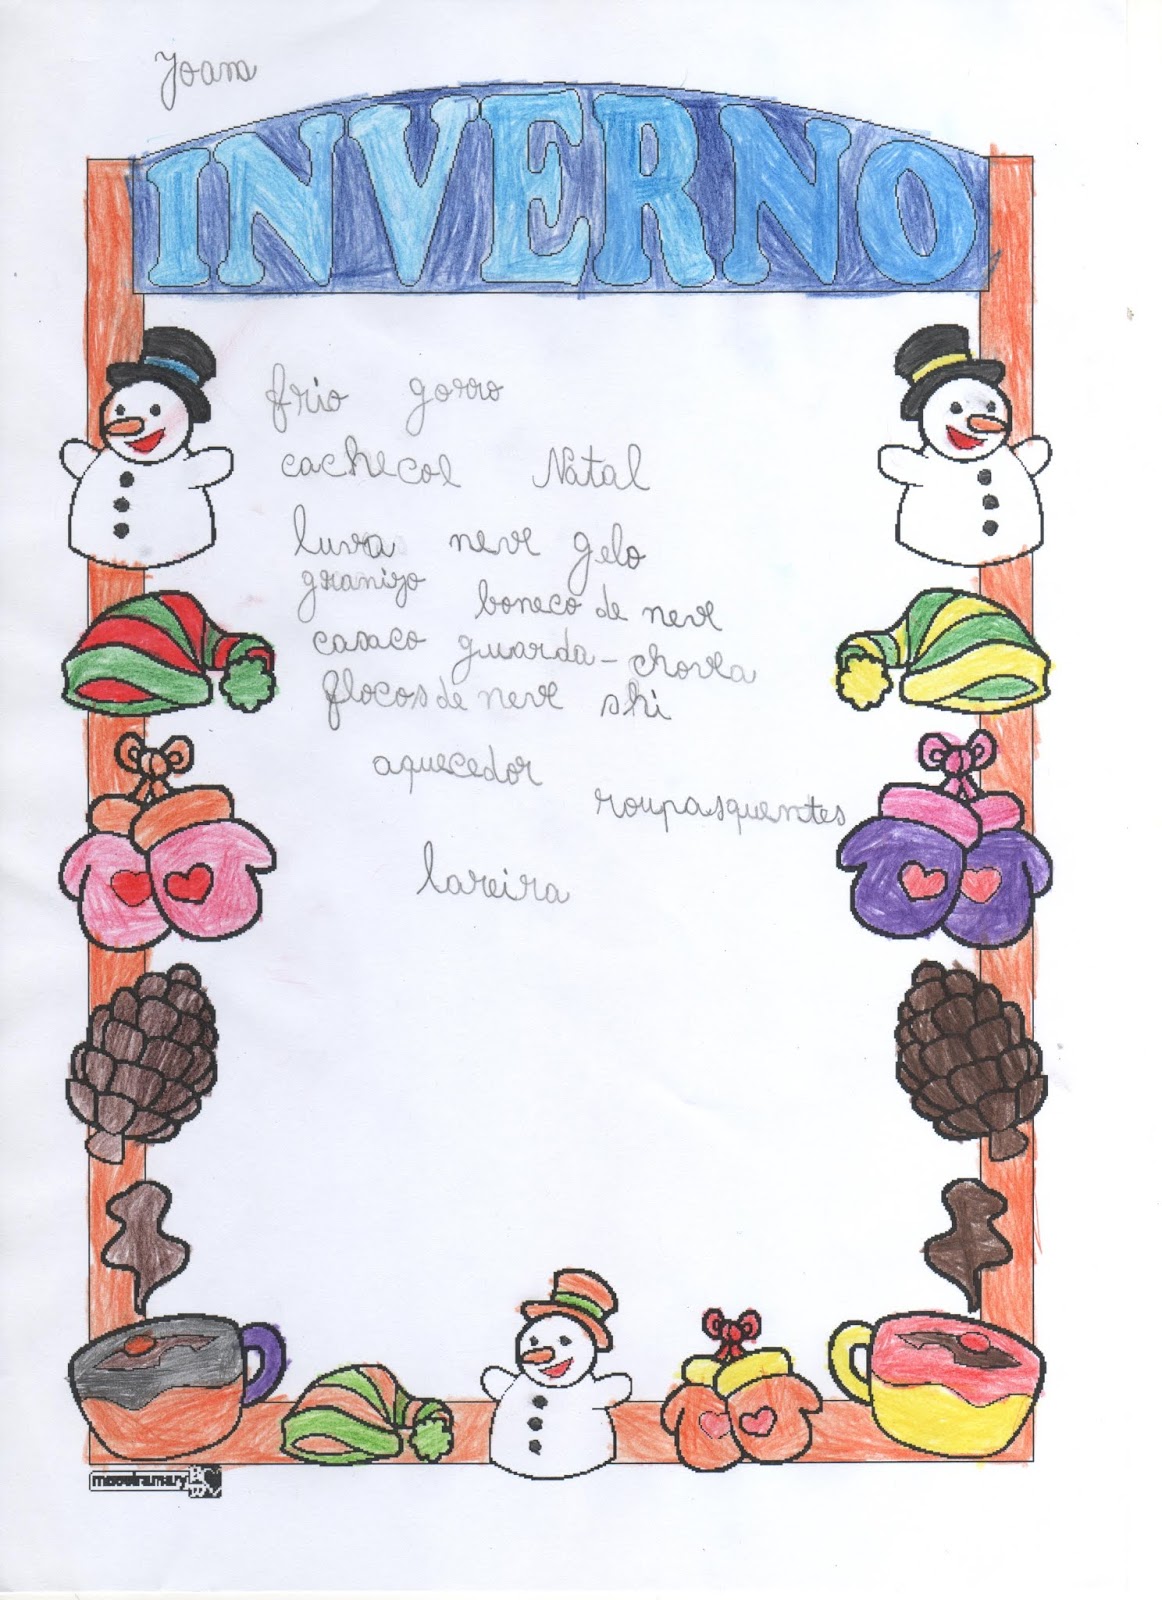 Joana
INVERNO
frio gorro
cachecol Natal
luva neve gelo
granizo boneco de neve
casaco guarda-chuva
flocos de neve ski
aquecedor
roupasquentes
lareira